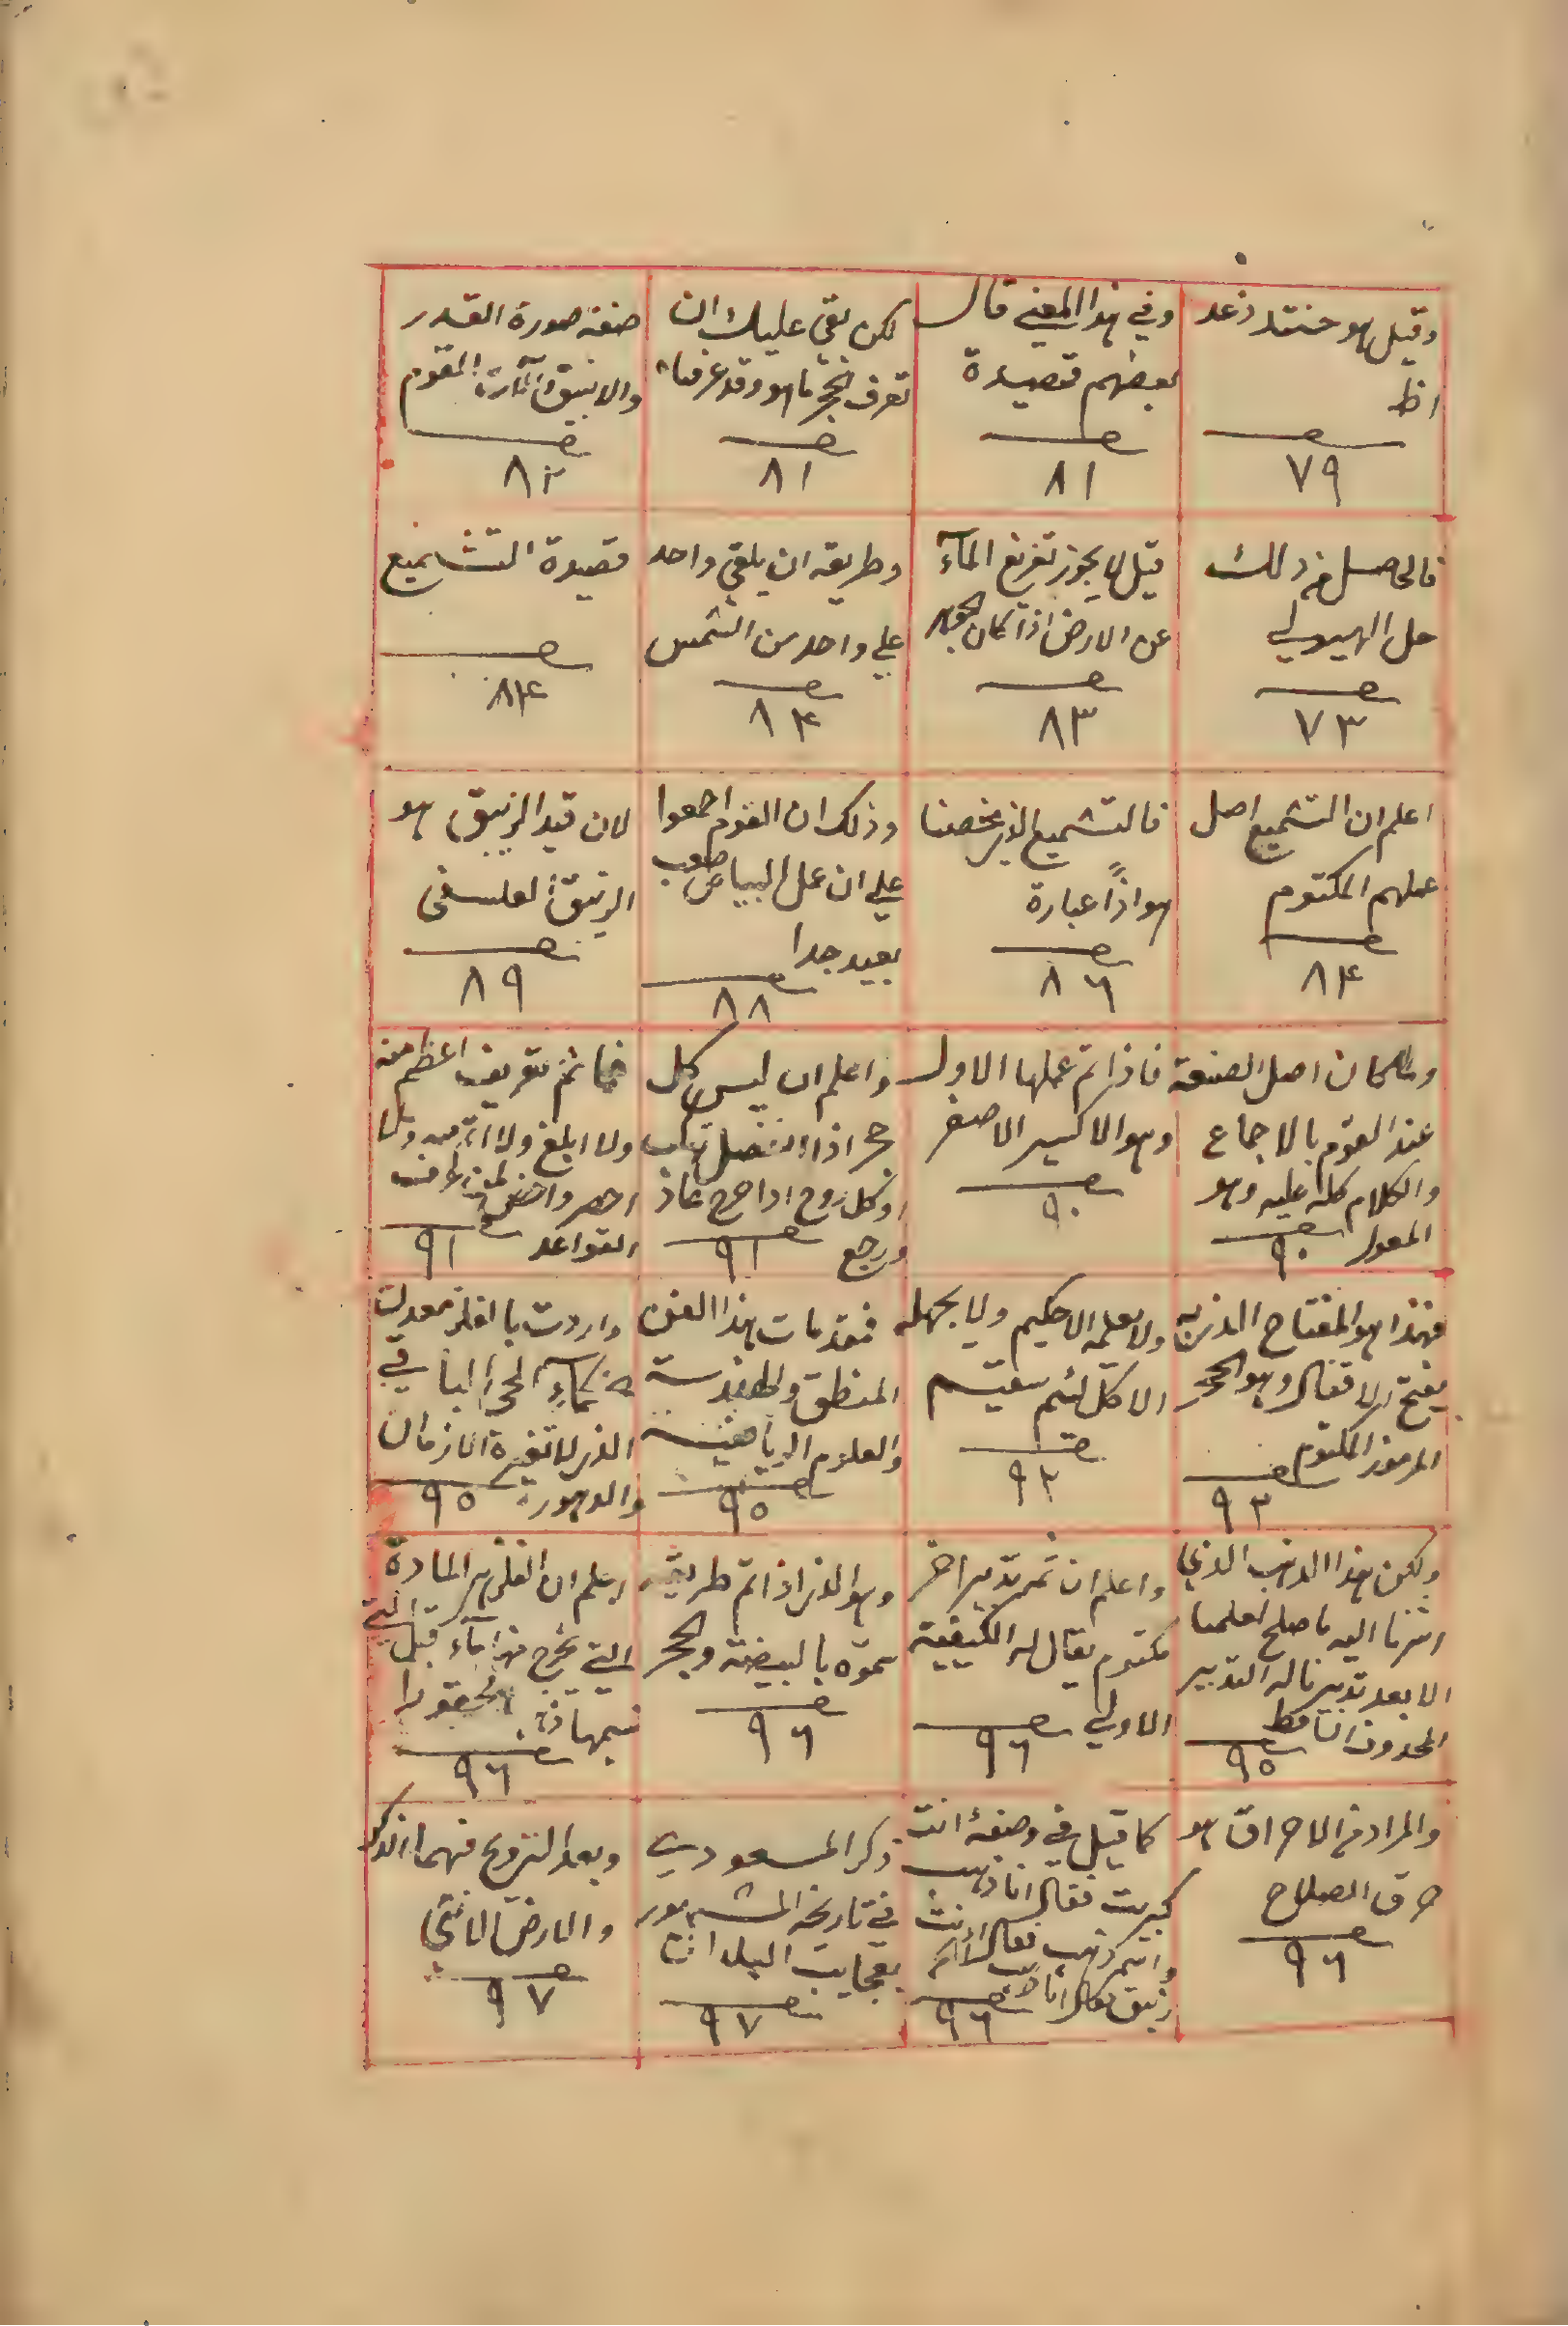 وقيل هو
اظ
صـ
٧٩
وفي هذا المعني قال
بعضهم قصيدة
صـ
٨١
لكن بقي عليك ان
تعرف الحجر ما هو وقد عرفناه
صـ
٨١
صفة صورة القدر
والانبيق القوم
صـ
٨٢
فالحاصل من ذلك
حل الهيولي
صـ
٧٣
قيل لا يجوز تفريغ المآء
عن الارض اذا كان الجوهر
صـ
٨٣
وطريقه ان يلقي واحد
علي واحد من الشمس
صـ
٨۴
قصيدة التشميع
صـ
٨۴
اعلم ان التشميع اصل
عملهم المكتوم
صـ
٨۴
فالتشميع الذي يخصنا
هو اذًا عبارة
صـ
٨٦
وذلك ان القوم اجمعوا
علي ان عمل البياض صعب
بعيد جدا
صـ
٨٨
لان قيد الزيبق هو
الزيبق الفلسفي
صـ
٨٩
ولما كان اصل الصنعة
عند القوم بالاجماع
والكلام كله عليه وهو
المعول صـ
٩٠
فاذا تم عملها الاول
وهو الاكسير الاصغر
صـ
٩٠
واعلم ان ليس كل
حجر اذا انفصل ذاب
او كل روح اذا خرج عاد
ورجع صـ
٩١
فما ثم تعريف اعظم منه
ولا ابلغ ولا
احصر واخص لمن عرف
القواعد صـ
٩١
فهذا هو المفتاح الذي به
يفتح الاقفال وهو الحجر
المرموز المكتوم
صـ
٩٣
ولا يعلمه الا حكيم ولا يجهله
الا كل لئيم سقيم
صـ
٩٣
فمقدمات هذا الفن
المنطق والهندسة
والعلوم الرياضية
صـ
٩٥
واردت بالفلز معدن
الحي الباقي
الذي لا تغيره الازمان
والدهور صـ
٩٥
ولكن هذا الذهب الذي
اشرنا اليه ما صلح لعلمنا
الا بعد تدبيرنا له التدبير
المحذوف الساقط
صـ
٩٥
واعلم ان ثم تدبير اخر
مكتوم يقال له الكيفية
الاولي صـ
٩٦
وهو الذي اذا تم طريقه
سموه بالبيضة والحجر
صـ
٩٦
اعلم ان الفلز هي المادة
التي يخرج منها مآء قبل
صـ
٩٦
والمراد من الاحراق هو
حرق الصلاح
صـ
٩٦
كما قيل في وصفه انت
كبريت فقال انا ذهب
صـ
٩٦
ذكر المسعودي
في تاريخه المشهور
بعجايب البلدان
صـ
٩٧
وبعد التزويج فهما الذكر
والارض الانثي
صـ
٩٧